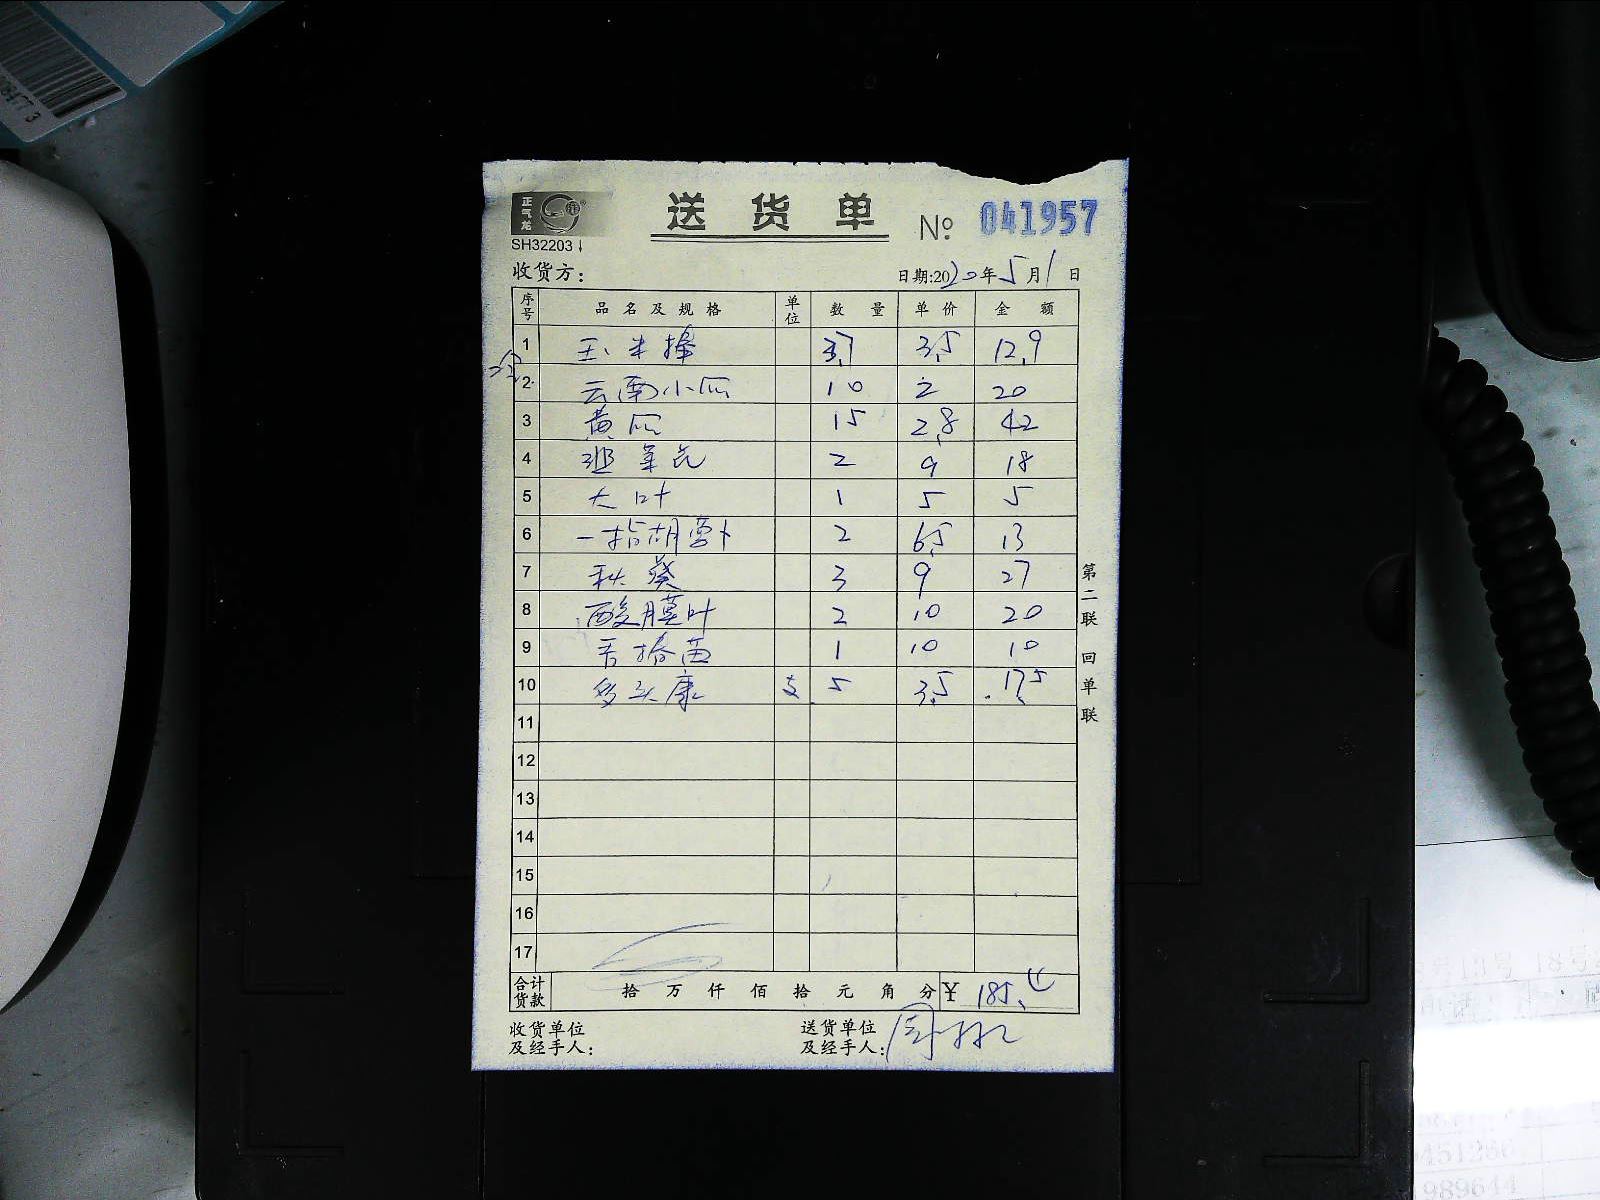 正气龙
送货单 № 041957
SH32203
收货方： 日期:2020年5月1日
序号 品名及规格 单位 数量 单价 金额
1 玉米棒 3.7 3.5 12.9
2 云南小瓜 10 2 20
3 黄瓜 15 2.8 42
4 9 18
5 大叶 1 5 5
6 一指胡萝卜 2 6.5 13
7 秋葵 3 9 27
8 酸膜叶 2 10 20
9 香椿苗 1 10 10
10 多头康 支 5 3.5 17.5
11
12
13
14
15
16
17
合计货款 拾万仟佰拾元角分 ¥ 185.4
收货单位及经手人： 送货单位及经手人：
第二联 回单联
451266
989644